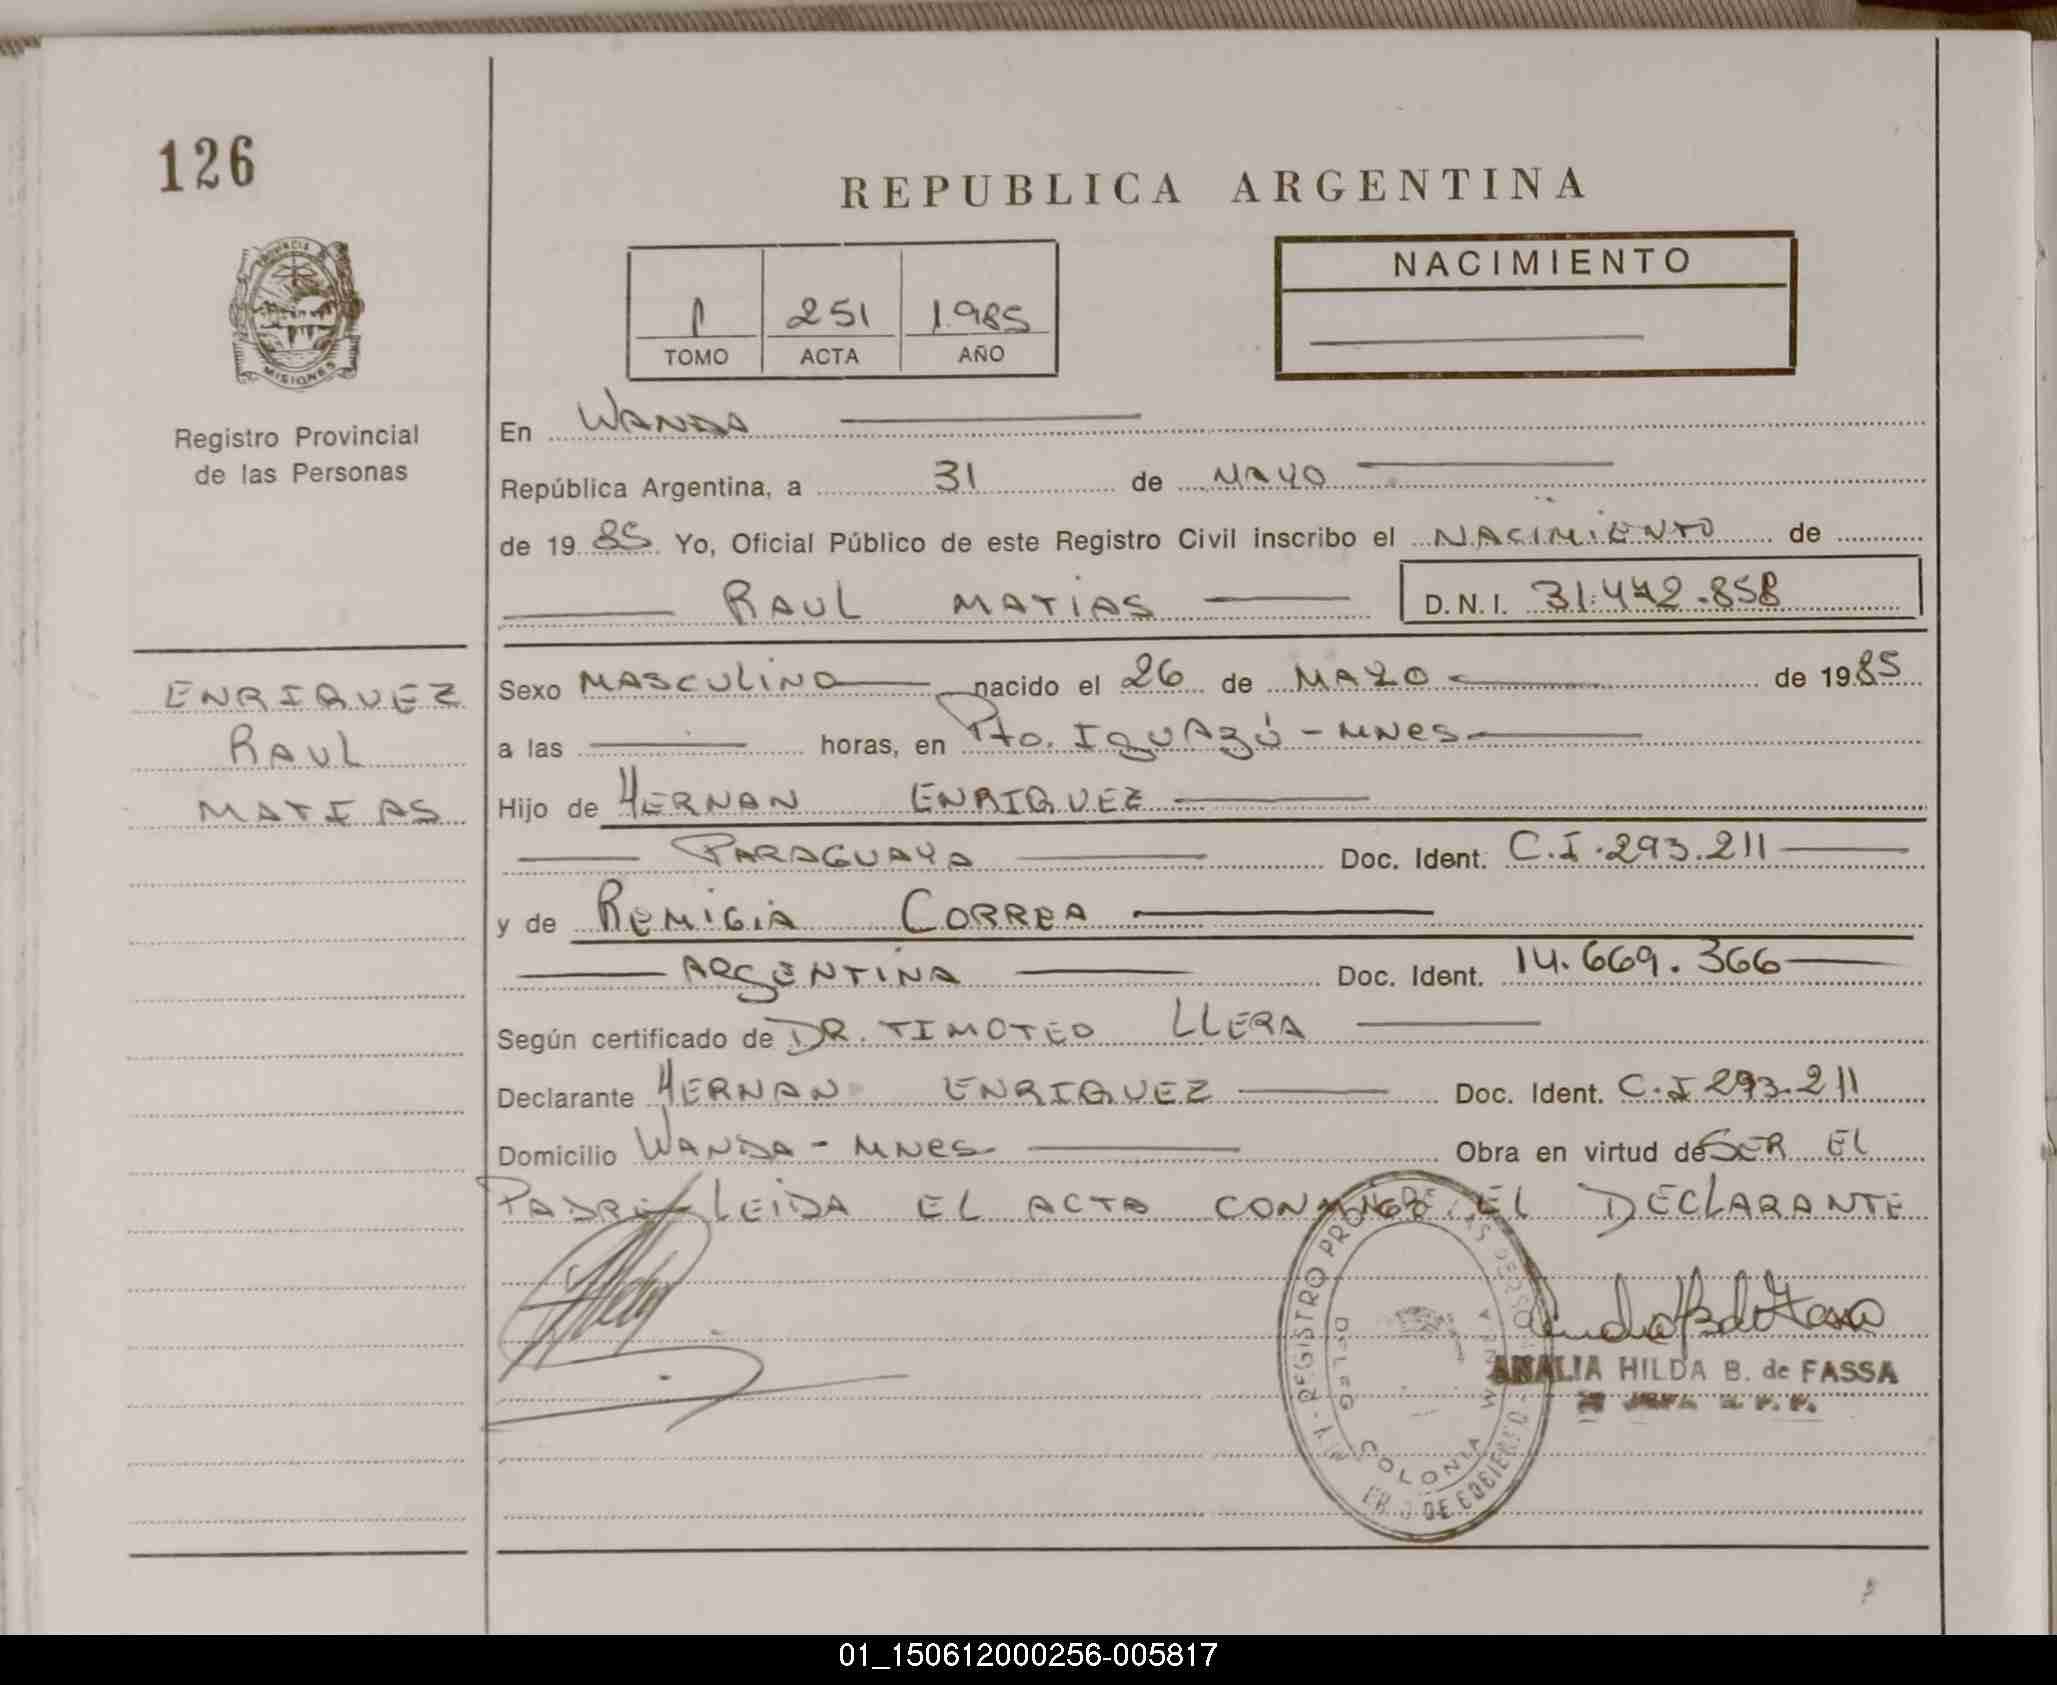 126
REPUBLICA ARGENTINA
PROVINCIA
MISIONES
Registro Provincial
de las Personas
1 251 1.985
TOMO ACTA AÑO
NACIMIENTO
En WANDA
República Argentina, a 31 de MAYO
de 19 85 Yo, Oficial Público de este Registro Civil inscribo el NACIMIENTO de
RAUL MATIAS D.N.I. 31.442.858
ENRIQUEZ
RAUL
MATIAS
Sexo MASCULINO nacido el 26 de MAYO de 19 85
a las horas, en Pto. IGUAZÚ - MNES
Hijo de HERNAN ENRIQUEZ
PARAGUAYA Doc. Ident. C.I. 293.211
y de REMIGIA CORREA
ARGENTINA Doc. Ident. 14.669.366
Según certificado de DR. TIMOTEO LLERA
Declarante HERNAN ENRIQUEZ Doc. Ident. C.I 293.211
Domicilio WANDA - MNES Obra en virtud de SER EL
PADRE LEIDA EL ACTA CONMIGO EL DECLARANTE
REGISTRO PROV. DE LAS PERSONAS
DELEG
WANDA
COLONIA
ANALIA HILDA B. de FASSA
01_150612000256-005817